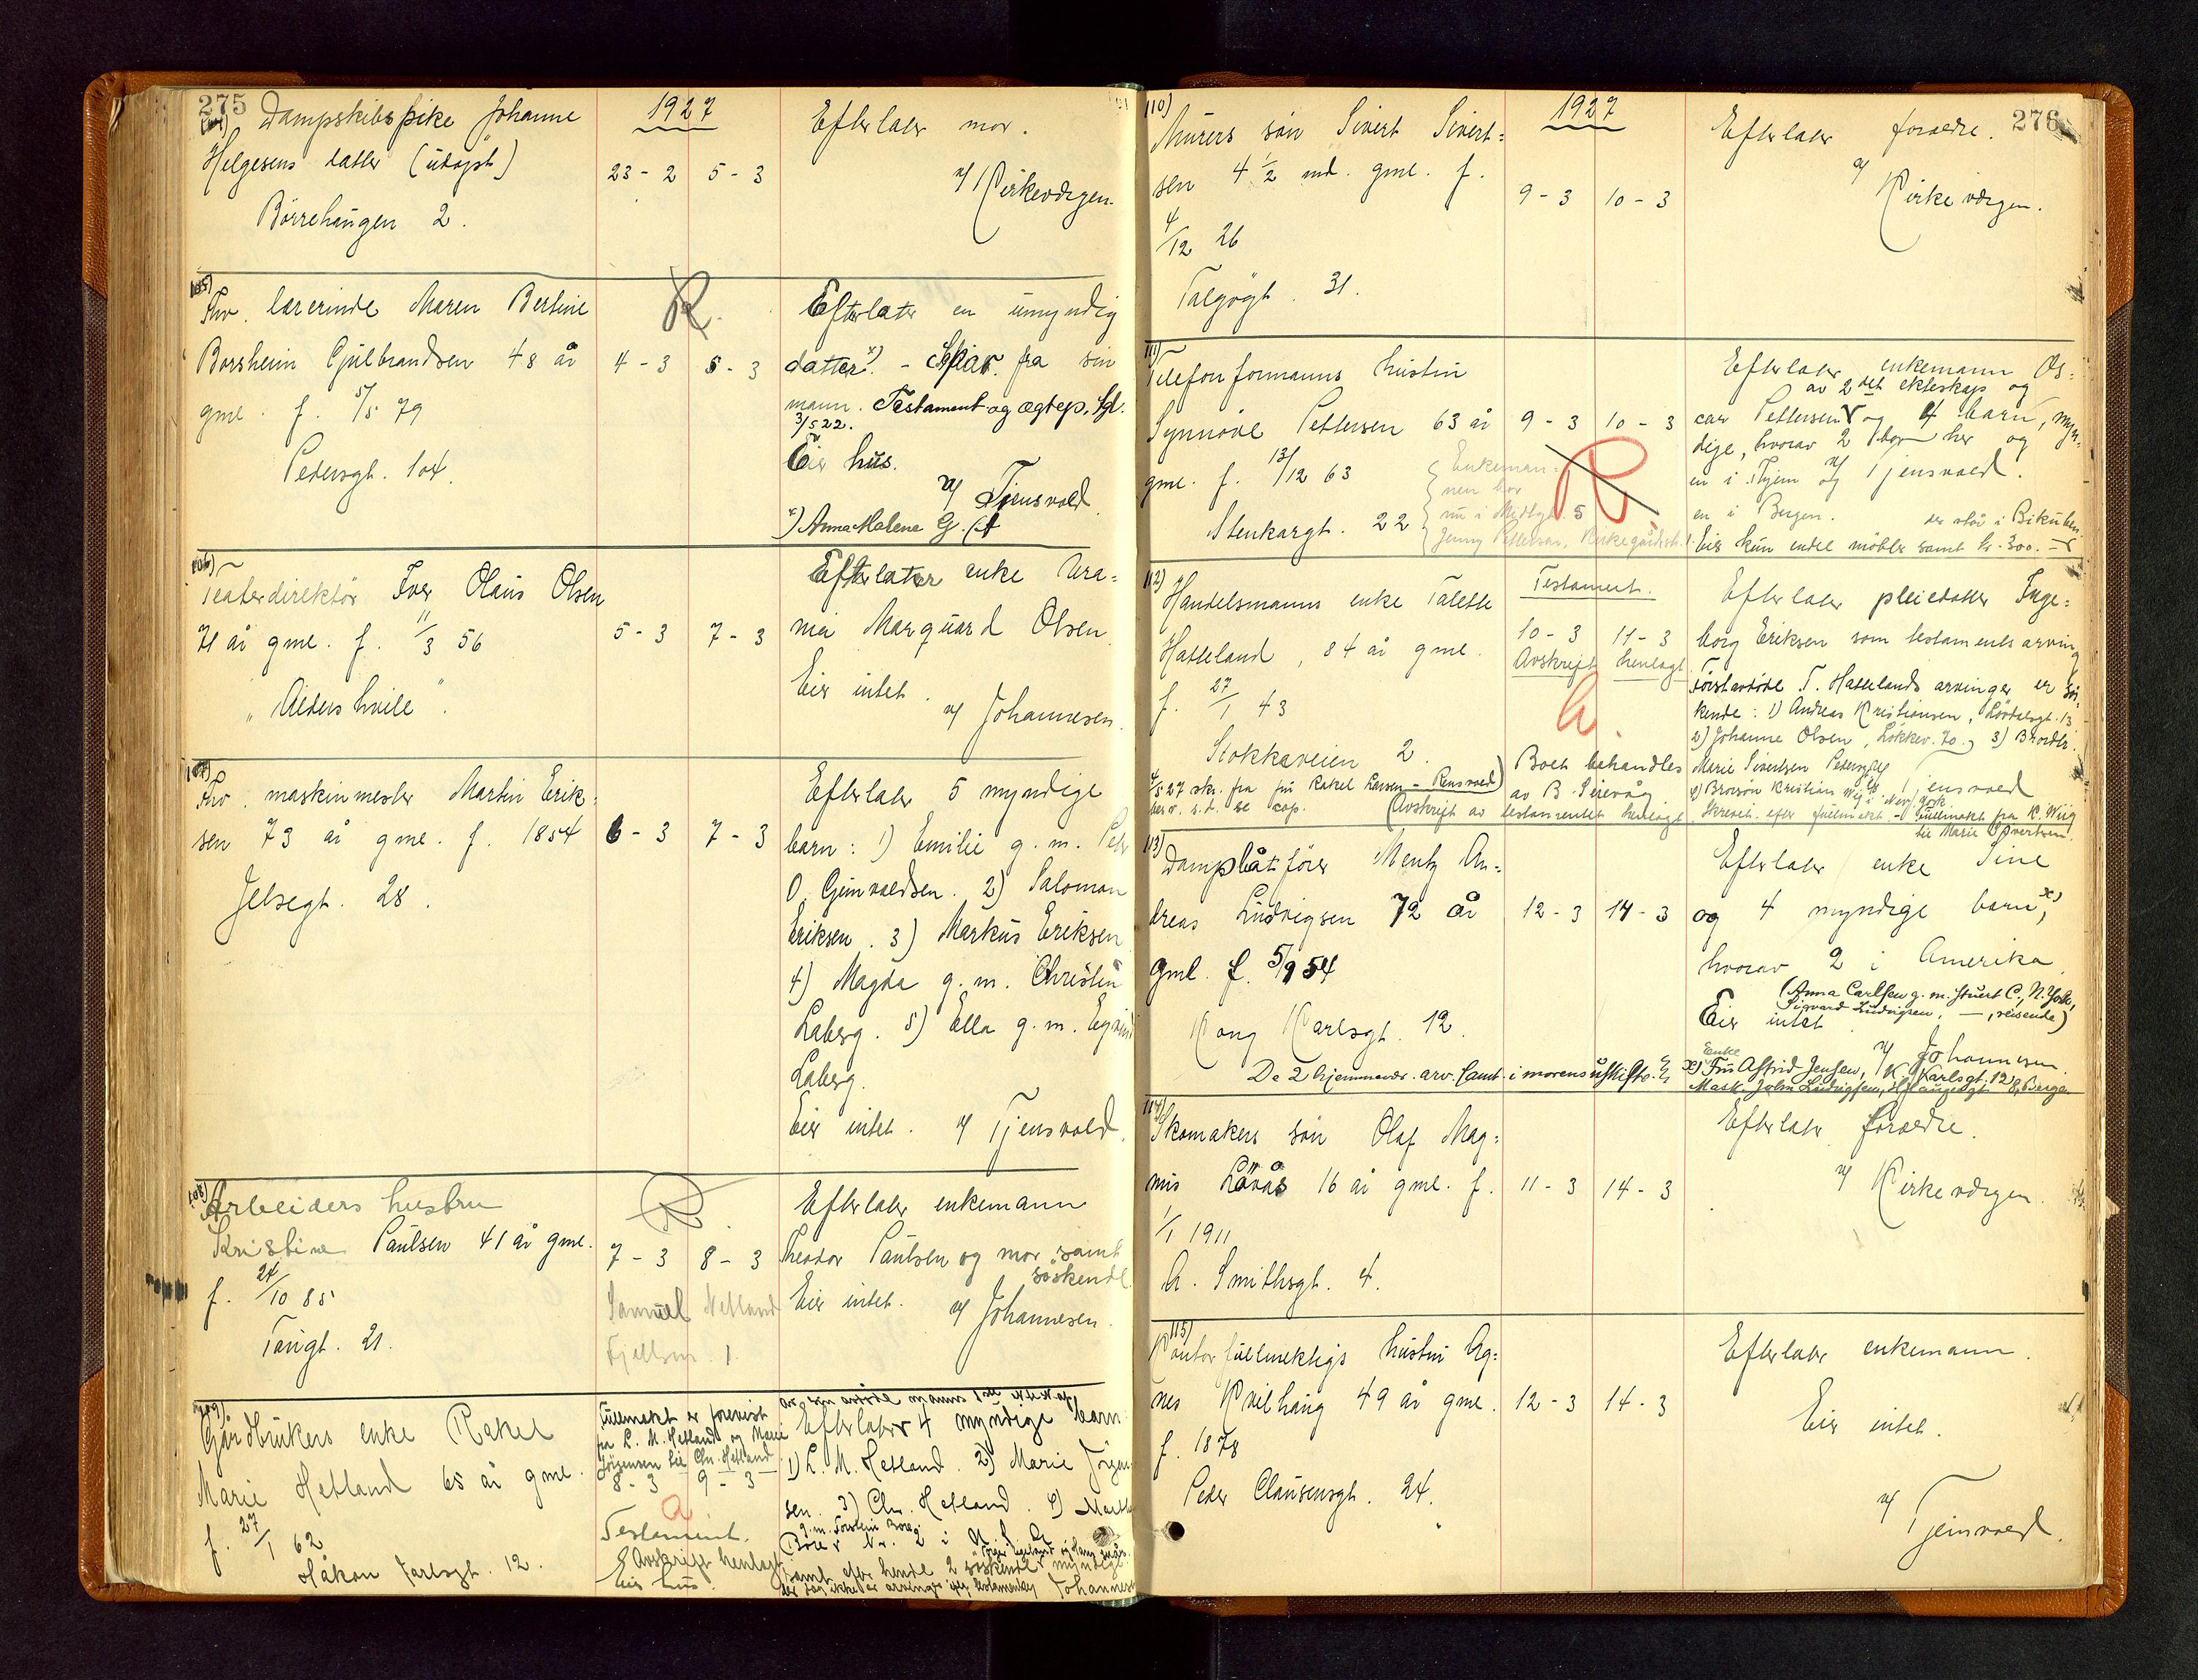 275
104)
Dampskibspike Johanne
Helgesens datter (udøpt)
Börrehaugen 2.
1927
23 - 2 5 - 3
Efterlater mor.
v/ Kirkevergen.
105)
Fhv. lærerinde Maren Bertine
Borsheim Gulbrandsen 48 år
gml. f. 5/5 79
Pedersgt. 104.
R.
4 - 3 5 - 3
Efterlater en umyndig
datter x). - Skjar. fra sin
mann. Testament og ægtep. tgl.
3/5 22.
Eier hus.
v/ Tjensvold
x) Anna Malene G.
106)
Teaterdirektör Iver Olaus Olsen
71 år gml. f. 11/3 56
"Alders hvile".
5 - 3 7 - 3
Efterlater enke Ura=
nia Marquard Olsen
Eier intet.
v/ Johannesen.
107)
Fhv. maskinmester Martin Erik=
sen 73 år gml. f. 1854
Jelsegt. 28.
6 - 3 7 - 3
Efterlater 5 myndige
barn: 1) Emilie g. m. Peder
O. Gunvaldsen. 2) Salomon
Eriksen. 3) Markus Eriksen
4) Magda g. m. Christen
Laberg. 5) Ella g. m. Eyvind
Laberg.
Eier intet. v/ Tjensvold.
108)
Arbeiders hustru
Kristine Paulsen 41 år gml.
f. 24/10 85
Taugt. 21.
R.
7 - 3 8 - 3
Samuel Netland
1
Efterlater enkemann
Theodor Paulsen og mor samt
söskende.
Eier intet. v/ Johannesen.
109)
Gårdbrukers enke Rakel
Marie Hetland 65 år gml.
f. 27/1 62
Håkon Jarlsgt. 12.
Fullmakt er forevist
fra L. M. Hetland og Marie
Jörgensen til Chr. Hetland
8 - 3 9 - 3
a
Testament.
Avskrift henlagt
Eier hus.
av sin avdöde manns 1ste
Efterlater 4 myndige barn
1) L. M. Hetland. 2) Marie Jörgen=
sen. 3) Chr. Hetland. 4)
g. m. Torstein Bore,
Bore
samt efter hende 2 söskende myndige
der dog ikke er arvinger iflg. testamentet Johannesen
276
110)
Murers sön Sivert Sivert=
sen 4 1/2 md. gml. f.
4/12 26
Talgögt. 31.
1927
9 - 3 10 - 3
Efterlater foraedre.
v/ Kirkevergen.
111)
Telefonformanns hustru
Synnöve Pettersen 63 år
gml. f. 13/12 63
Stenkargt. 22
9 - 3 10 - 3
R
Enkeman=
nen bor
nu i Midtbgt. 5
Jenny Pettersen, Kirkegårdst. 1.
Efterlater enkemann Os=
av 2det ekteskap og
car Pettersen og 4 barn, myn=
dige, hvorav 2 bor her og
en i Hjem v/ Tjensvold.
en i Bergen. der står i Bikuben
Eier kun endel möbler samt kr. 300.-
112)
Handelsmanns enke Talette
Hatteland, 84 år gml.
f. 27/1 43
Stokkaveien 2.
Testament.
10 - 3 11 - 3
Avskrift henlagt
a.
Boet behandles
av B. Seievåg
4/5 27 skr. fra fru Rakel Larsen - Rensvold)
(Avskrift av testamentet henlagt.
Efterlater pleiedatter Inge=
borg Eriksen som testaments arving
Förstavdöde T. Hattelands arvinger er sö=
kende: 1) Andreas Kristiansen, Lövdalsgt. 13
2) Johanne Olsen, Lökkev. 70. 3) Brordtr.
Marie Sivertsen Pedersgt.
v/ Tjensvold
4) Brorsön Kristian Wig i New York
Skrevet efter fullmakt - Fullmakt fra K. Wiig
til Marie Sivertsen.
113)
Dampbåtförer Mentz An=
dreas Ludvigsen 72 år
gml. f. 5/9 54
Kong Karlsgt. 12.
12 - 3 14 - 3
Efterlater enke Sine
og 4 myndige barn x),
hvorav 2 i Amerika.
(Anna Carlsen g. m. Stuert C., N. York,
Sigvard Ludvigsen, —, reisende)
Eier intet.
v/ Johannesen.
De 2 hjemmevær. arv. samt. i morens uskifte.
Enke
x) Fru Astrid Jensen, K. Karlsgt. 12
Mask. John Ludvigsen, Bergen
114)
Skomakers sön Olaf Mag=
nus Lövås 16 år gml. f.
1/1 1911
A. Smithsgt. 4.
11 - 3 14 - 3
Efterlater foraedre.
v/ Kirkevergen.
115)
Kontorfullmektigs hustru Ag=
nes Kvilhaug 49 år gml.
f. 1878
Peder Clausensgt. 24.
12 - 3 14 - 3
Efterlater enkemann.
Eier intet.
v/ Tjensvold.